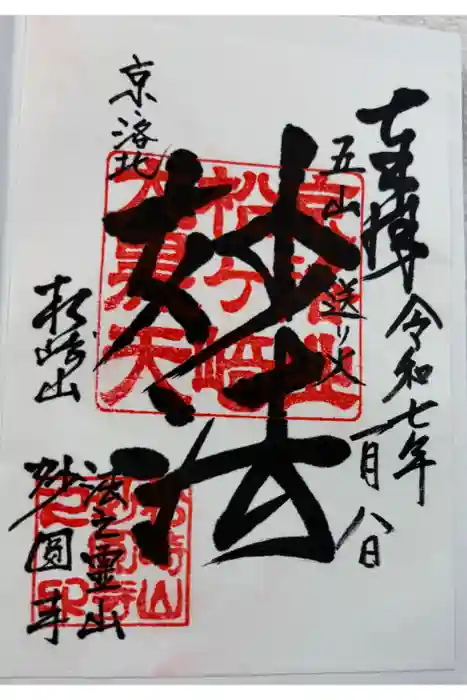 奉拝
令和七年
一月八日
五山
送り火
妙法
京洛北
松ヶ崎
大黒天
京洛北
松崎山
法之霊山
妙圓寺